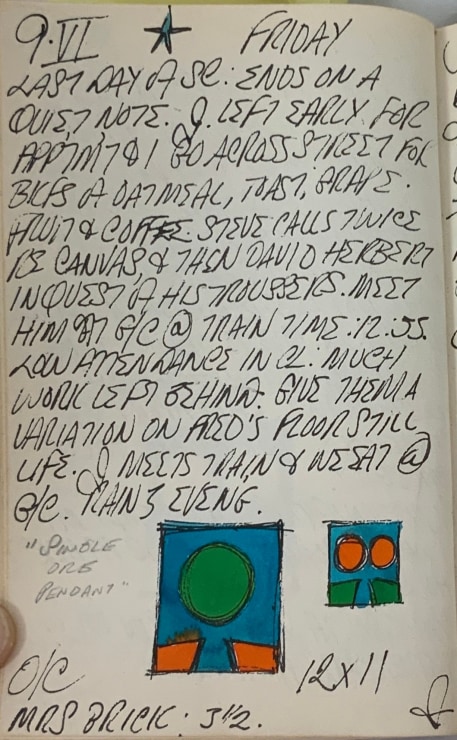 9·VI FRIDAY
LAST DAY OF SC: ENDS ON A
QUIET NOTE. J. LEFT EARLY FOR
APPTMT & I GO ACROSS STREET FOR
BKFS OF OATMEAL, TOAST, GRAPE-
FRUIT & COFFEE. STEVE CALLS TWICE
RE CANVAS, & THEN DAVID HERBERT
IN QUEST OF HIS TROUSSERS. MEET
HIM AT G/C @ TRAIN TIME: 12.55.
LOW ATTENDANCE IN CL: MUCH
WORK LEFT BEHIND. GIVE THEM A
VARIATION ON FRED'S FLOOR STILL
LIFE. J MEETS TRAIN & WE EAT @
G/C. RAIN 3 EVENG.
"
ORE
PENDANT"
12X11
O/C
MRS BRICK: 3½.